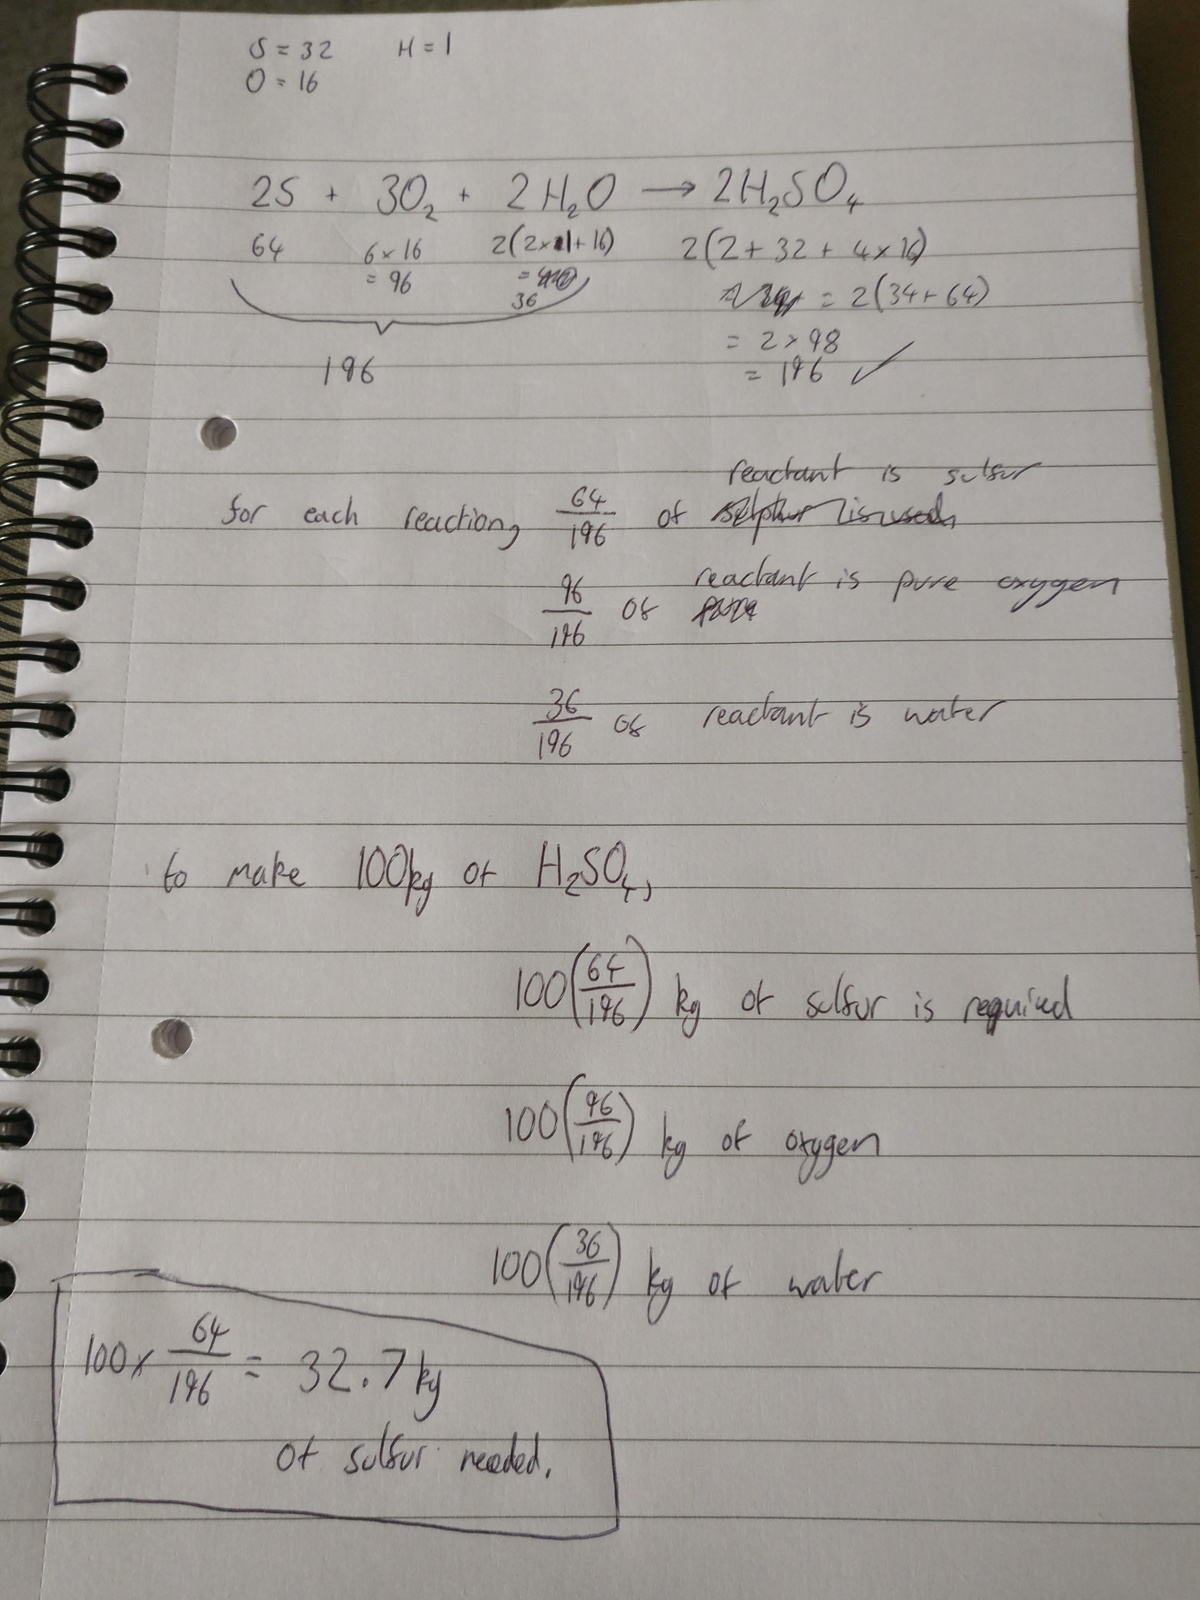 S = 32 H = 1
O = 16
2S + 3O₂ + 2H₂O → 2H₂SO₄
64 6 × 16 2(2×1+16) 2(2 + 32 + 4 × 16)
= 96 = 36 = 2(34 + 64)
= 2 × 98
196 = 196 ✓
reactant is sulfur
for each reaction, 64/196 of
96/196 of reactant is pure oxygen
36/196 of reactant is water
to make 100kg of H₂SO₄,
100(64/196) kg of sulfur is required
100(96/196) kg of oxygen
100(36/196) kg of water
100 × 64/196 = 32.7 kg
of sulfur needed.